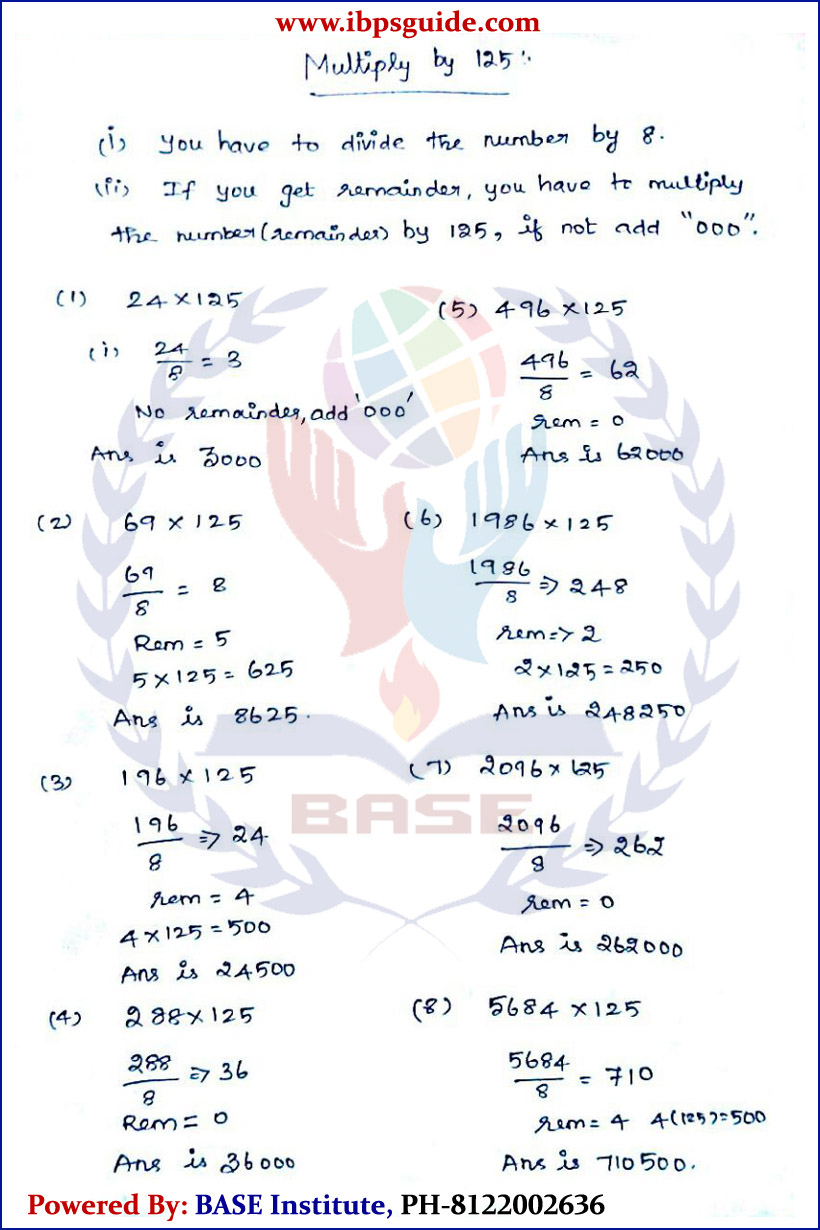 www.ibpsguide.com
Multiply by 125:
(i) You have to divide the number by 8.
(ii) If you get remainder, you have to multiply
the number (remainder) by 125, if not add "000".
(1) 24 × 125
(i) 24/8 = 3
No remainder, add '000'
Ans is 3000
(2) 69 × 125
69/8 = 8
Rem = 5
5 × 125 = 625
Ans is 8625.
(3) 196 × 125
196/8 => 24
rem = 4
4 × 125 = 500
Ans is 24500
(4) 288 × 125
288/8 => 36
Rem = 0
Ans is 36000
(5) 496 × 125
496/8 = 62
rem = 0
Ans is 62000
(6) 1986 × 125
1986/8 => 248
rem => 2
2 × 125 = 250
Ans is 248250
(7) 2096 × 125
2096/8 => 262
rem = 0
Ans is 262000
(8) 5684 × 125
5684/8 = 710
rem = 4 4(125) = 500
Ans is 710500.
BASE
Powered By: BASE Institute, PH-8122002636